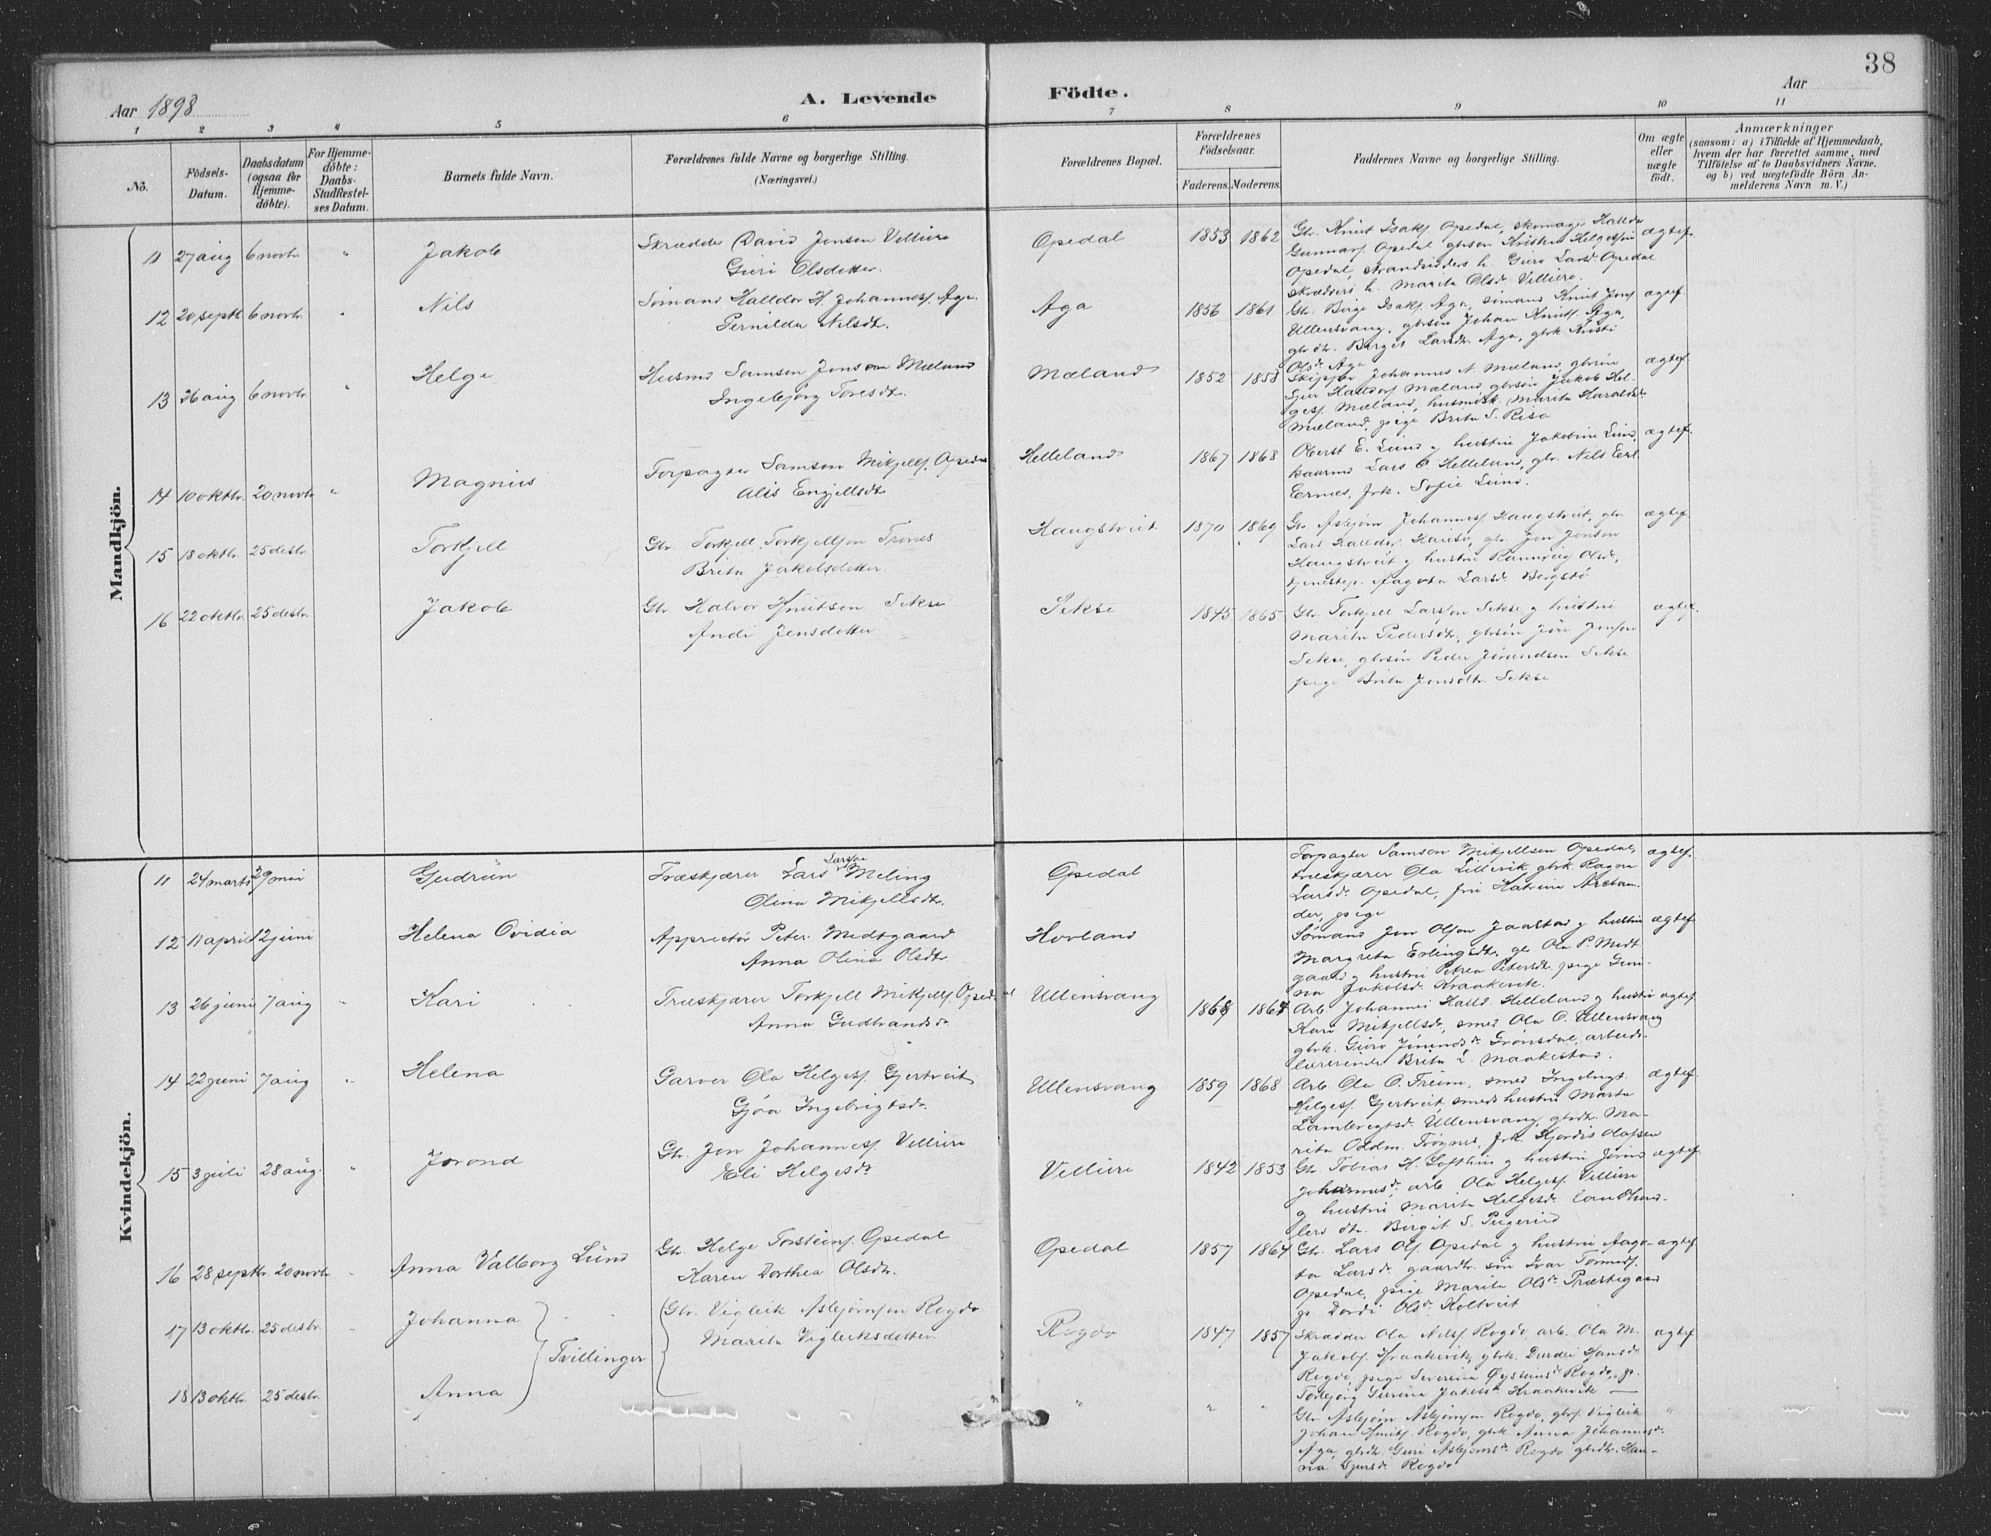 38
Aar 1898
A. Levende
Födte.
Aar
1 2 3 4 5 6 7 8 9 10 11
No.
Födsels-Datum.
Daabsdatum (ogsaa for Hjemme-döbte).
For Hjemme-döbte: Daabs-Stadfæstel-ses Datum.
Barnets fulde Navn.
Forældrenes fulde Navne og borgerlige Stilling.
(Næringsvei.)
Forældrenes Bopæl.
Forældrenes Födselsaar.
Faderens. Moderens.
Faddernes Navne og borgerlige Stilling.
Om ægte eller uægte födt.
Anmærkninger
(saasom: a) i Tilfælde af Hjemmedaab,
hvem der har forrettet samme, med
Tilföielse af to Daabsvidners Navne.
og b) ved uægtefödte Börn An-
melderens Navn m. V.)
Mandkjön.
11 27 aug 6 novbr. " Jakob
Skrædder David Jonsen Velliure
Guri Olsdatter.
Opedal 1853 1862
Gbr. Knut Isaks. Opedal, skomager Halldor
Gunnars. Opedal gbrsøn Kristen Helgesen
Opedal, strandsidders h. Guro Larsd. Opedal
skrædders h. Marita Olsdr. Velliure.
ægtef.
12 20 septbr. 6 novbr. " Nils
Sømand Halldor H. Johanness. Aga.
Pernilda Nilsdtr.
Aga 1856 1861
Gbr. Birge Isaks. Aga, sømand Knut Jons.
Ullensvang, gbrsøn Johan Knuts. Aga,
gbrdtr. Barget Larsdr. Aga, gbrk. Kristi
Olsdr. Aga
ægtef.
13 26 aug 6 novbr. " Helge
Husmd Samson Jonson Mæland
Ingebjørg Toresdtr.
Mæland 1852 1858
Skipper Johannes N. Mæland, gbrsøn
Sjur Halldors. Mæland, gbrsøn Jakob Hel-
ges. Mæland, husmdsk. Marita Haraldsdtr.
Mæland, pige Brita S. Risa
ægtef.
14 10 oktbr. 20 novbr. " Magnus
Forpagter Samson Mikjells. Opedal
Alis Engjellsdtr.
Helleland 1867 1868
Oberst E. Lund og hustru Jakobine Lund,
kaarmd Lars O. Helleland, gbr. Nils Erl.
Ernes, frk. Sofie Lund.
ægtef.
15 18 oktbr. 25 desbr. Torkjell
Gbr. Torkjell Torkjellson Trones
Brita Jakobsdatter
Haugstveit 1870 1869
Gbr. Asbjørn Johanness. Haugstveit, gbr.
Lars Halldors. , gbr. Jon Jonson
Haugstveit og hustru Rannveig Olsdr.,
tjenestep. Aagota Larsd. Bergstø
ægtef.
16 22 oktbr. 25 desbr. Jakob
Gbr. Halvor Knutsen Sekse
Andi Jensdatter
Sekse 1845 1865
Gbr. Torkjell Larsson Sekse og hustru
Marita Pedersdtr., gbrsøn Jøri Jonson
Sekse, gbrsøn Peder Jørundsen Sekse
pige Brita Jonsdtr. Sekse
ægtef.
Kvindekjön.
11 24 marts 29 mai Gudrun
Træskjærer Lars Larsson Meling
Olina Mikjellsdtr.
Opedal
Forpagter Samson Mikjellsen Opedal,
træskjærer Ola Lillevik gbrk Ragna
Larsdr. Opedal, fru Katrine Arctan-
der, pige
ægtef.
12 11 april 12 juni Helena Ovidia
Appretør Peter Midtgaard
Anna Olina Olsdtr.
Hovland
Sømand Jon Olson Jaastad og hustru
Margreta Erlingsdtr., gbr Ola P. Midt-
gaard og hustru Petrea Petersdtr. pige Gun-
na Jakobsd. Kraakevik.
ægtef.
13 26 juni 7 aug " Kari
Træskjærer Torkjell Mikjells. Opedal
Anna Gudbrandsdr.
Ullensvang 1868 1868
Arb. Johannes Halld. Helleland og hustru
Kari Mikjellsdr., smed Ola O. Ullensvang
gbrk. Guro Jørundsdr. Grønsdal, arbeids-
lærerinde Brita L. Maakestad.
ægtef.
14 22 juni 7 aug " Helena
Garver Ola Helges. Gjertveit
Gjøa Ingebrigtsdr.
Ullensvang 1859 1868
Arb. Ola O. Freim, smed Ingebrigt
Helges. Gjertveit smeds hustru Marta
Lambregtsd. Ullensvang, gbrdtr. Ma-
rita Oddm. Trøynes, frk. Hjørdis Olafsen
ægtef.
15 3 juli 28 aug. " Jorond
Gbr. Jon Johanness. Velliure
Eli Helgesdr.
Velliure 1842 1853
Gbr. Tobias H. Lofthus og hustru Jørund
Johannesdr., arb Ola Helges. Velliure
og hustru Marita Helgesdr. landhand-
lers dtr. Birgit S.
ægtef.
16 28 septbr. 20 novbr. " Anna Valborg Lund
Gbr. Helge Torsteins. Opedal
Karen Dorthea Olsdtr.
Opedal 1857 1864
Gbr. Lars Ols. Opedal og hustru Aago-
ta Larsdr. gaardbr. søn Ivar Tormods.
Opedal, pige Marita Olsdr. Præstegaard
p. Dordi Olsdr. Holtveit
ægtef.
17 13 oktbr. 25 desbr. " Johanna
Tvillinger
Gbr. Vigleik Asbjørnson Rogdo
Marita Vigleiksdatter.
Rogdo 1847 1857
Skrædder Ola Nilss. Rogdo, arb. Ola M.
Jakobs. Kraakevik, gbrk. Durdei Hansdr.
Rogdo, pige Severina Øysteinsdr. Rogdo, p.
Torbjørg Jakobsd. Kraakevik
ægtef.
18 13 oktbr. 25 desbr. Anna
" " "
Gbr Asbjørn Asbjørnson Rogdo, gbrs. Vigleik
Johan Knuts. Rogdo, gbrk. Anna Johannesdr.
Aga, gbrdtr. Guri Asbjørnsdr. Rogdo gbrdtr. Han-
na Sjursdr. Rogdo
"